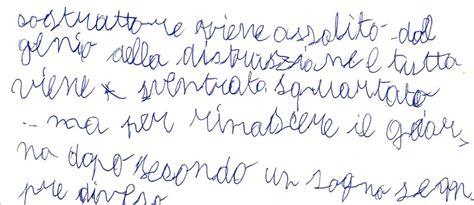 sostrattore viene assalito dal
genio della distruzione e tutta
viene sventrata squartata
... ma per rinascere il gior,
no dopo secondo un sogno sem
pre diverso